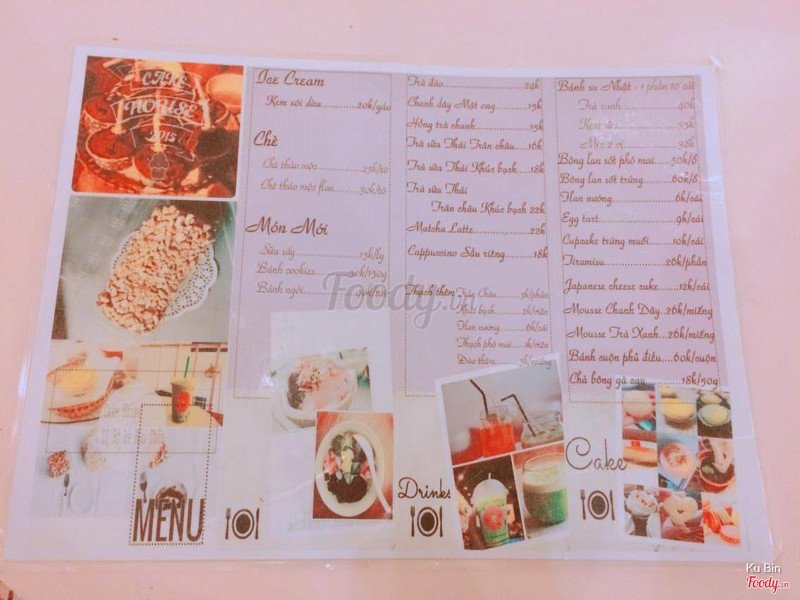 CAKE
HOUSE
2015
MENU
Ice Cream
Kem xôi dừa............20k/gáo
Chè
Chè thảo mộc............25k/tô
Chè thảo mộc flan.........30k/tô
Món Mới
Sữa sấy............15k/ly
Bánh cookies
Bánh ngói
Trà đào............24k
Chanh dây Mật ong............15k
Hồng trà chanh............15k
Trà sữa Thái Trân châu......16k
Trà sữa Thái Khúc bạch......18k
Trà sữa Thái
Trân châu Khúc bạch 22k
Matcha Latte............22k
Cappuccino Sầu riêng............18k
Thạch thêm Trân Châu......5k/phần
Khúc bạch
Flan nướng............6k/cái
Thạch phô mai
Đào thêm
Drinks
Bánh su Nhật - 1 phần 10 cái
Trà xanh............40k
Kem sữa............35k
Mix 2 vị............38k
Bông lan sốt phô mai......50k/ổ
Bông lan sốt trứng......60k/ổ
Flan nướng............6k/cái
Egg tart............9k/cái
Cupcake trứng muối......10k/cái
Tiramisu............26k/phần
Japanese cheese cake......12k/cái
Mousse Chanh Dây..26k/miếng
Mousse Trà Xanh...26k/miếng
Bánh cuộn phủ điêu......60k/cuộn
Chà bông gà cay............18k/50g
Cake
Foody.vn
Ku Bin
Foody.vn